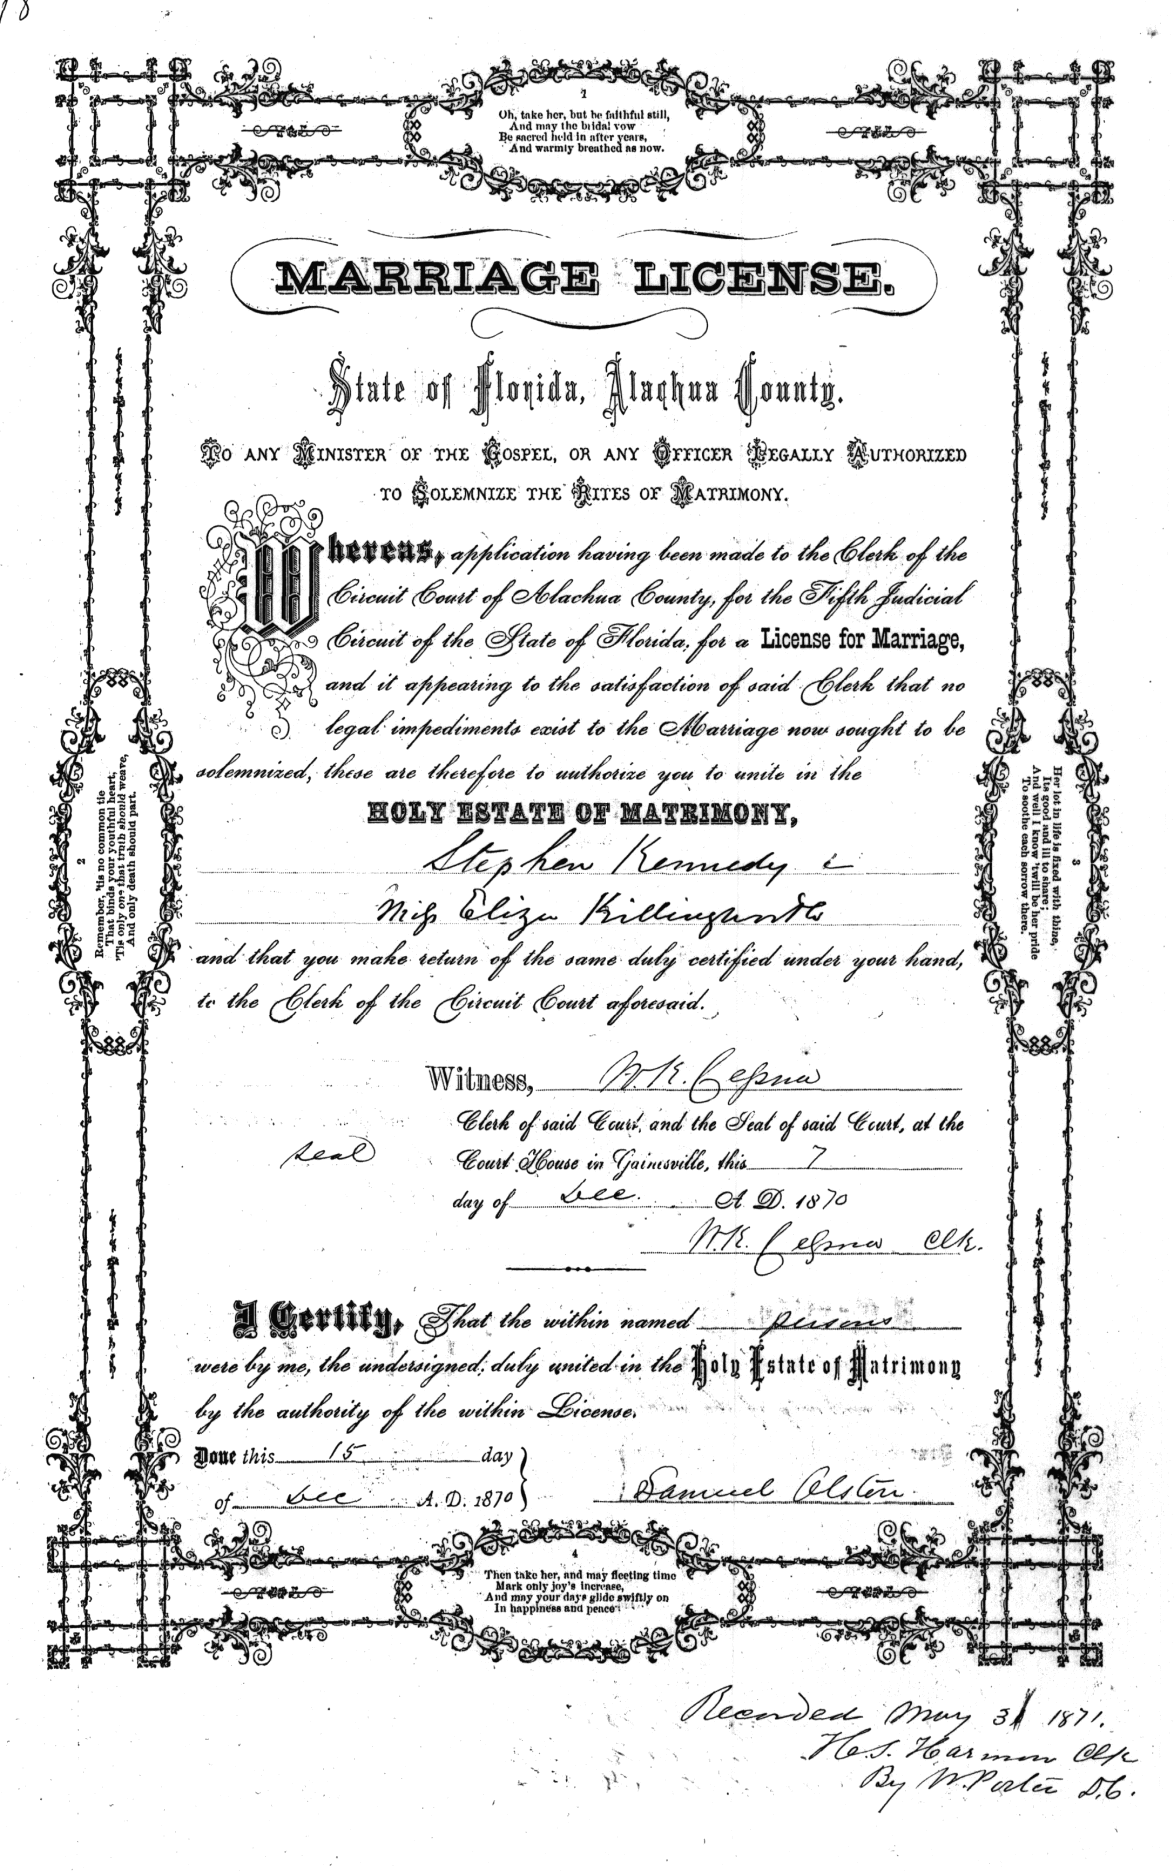 1
Oh, take her, but be faithful still,
And may the bridal vow
Be sacred held in after years,
And warmly breathed as now.
MARRIAGE LICENSE.
State of Florida, Alachua County.
TO ANY MINISTER OF THE GOSPEL, OR ANY OFFICER LEGALLY AUTHORIZED
TO SOLEMNIZE THE RITES OF MATRIMONY.
Whereas, application having been made to the Clerk of the
Circuit Court of Alachua County, for the Fifth Judicial
Circuit of the State of Florida, for a License for Marriage,
and it appearing to the satisfaction of said Clerk that no
legal impediments exist to the Marriage now sought to be
solemnized, these are therefore to authorize you to unite in the
HOLY ESTATE OF MATRIMONY,
Stephen Kennedy &
Miss Eliza Killingsworth
and that you make return of the same duly certified under your hand,
to the Clerk of the Circuit Court aforesaid.
2
Remember, 'tis no common tie
That binds your youthful heart,
'Tis only one that truth should weave,
And only death should part.
3
Her lot in life is fixed with thine,
Its good and ill to share;
And well I know 'twill be her pride
To soothe each sorrow there.
Witness, W.K. Cessna
Clerk of said Court, and the Seal of said Court, at the
seal
Court House in Gainesville, this 7
day of Dec. A. D. 1870
W.K. Cessna Clk.
I Certify, That the within named persons
were by me, the undersigned, duly united in the Holy Estate of Matrimony
by the authority of the within License.
Done this 15 day
of Dec A. D. 1870
Samuel Olsten
4
Then take her, and may fleeting time
Mark only joy's increase,
And may your days glide swiftly on
In happiness and peace.
Recorded May 31 1871.
H.S. Harmon Clk
By W. Porter D.C.